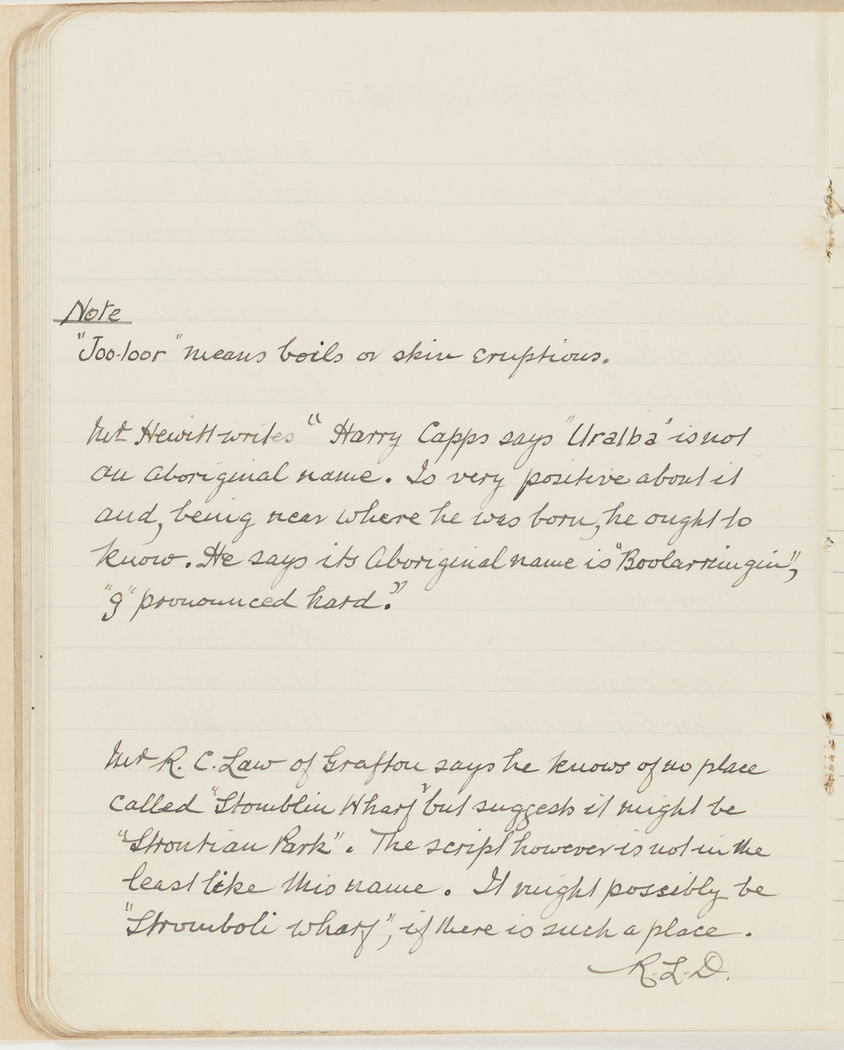 Note
"Joo-loor" means boils or skin eruptions.
Mr Hewitt writes "Harry Capps says "Uralba" is not
an Aboriginal name. Is very positive about it
and, being near where he was born, he ought to
know. He says its Aboriginal name is "Boolarringin",
"g" pronounced hard."
Mr R. C. Law of Grafton says he knows of no place
called "Stomblin Wharf" but suggests it might be
"Strontian Park". The script however is not in the
least like this name. It might possibly be
"Stromboli wharf", if there is such a place.
R.L.D.